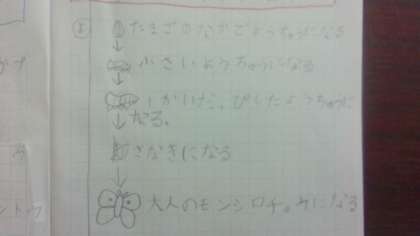 たまごのなかでようちゅうになる
小さいようちゅうになる
1かいだっぴしたようちゅうに
なる。
さなぎになる
大人のモンシロチョウになる